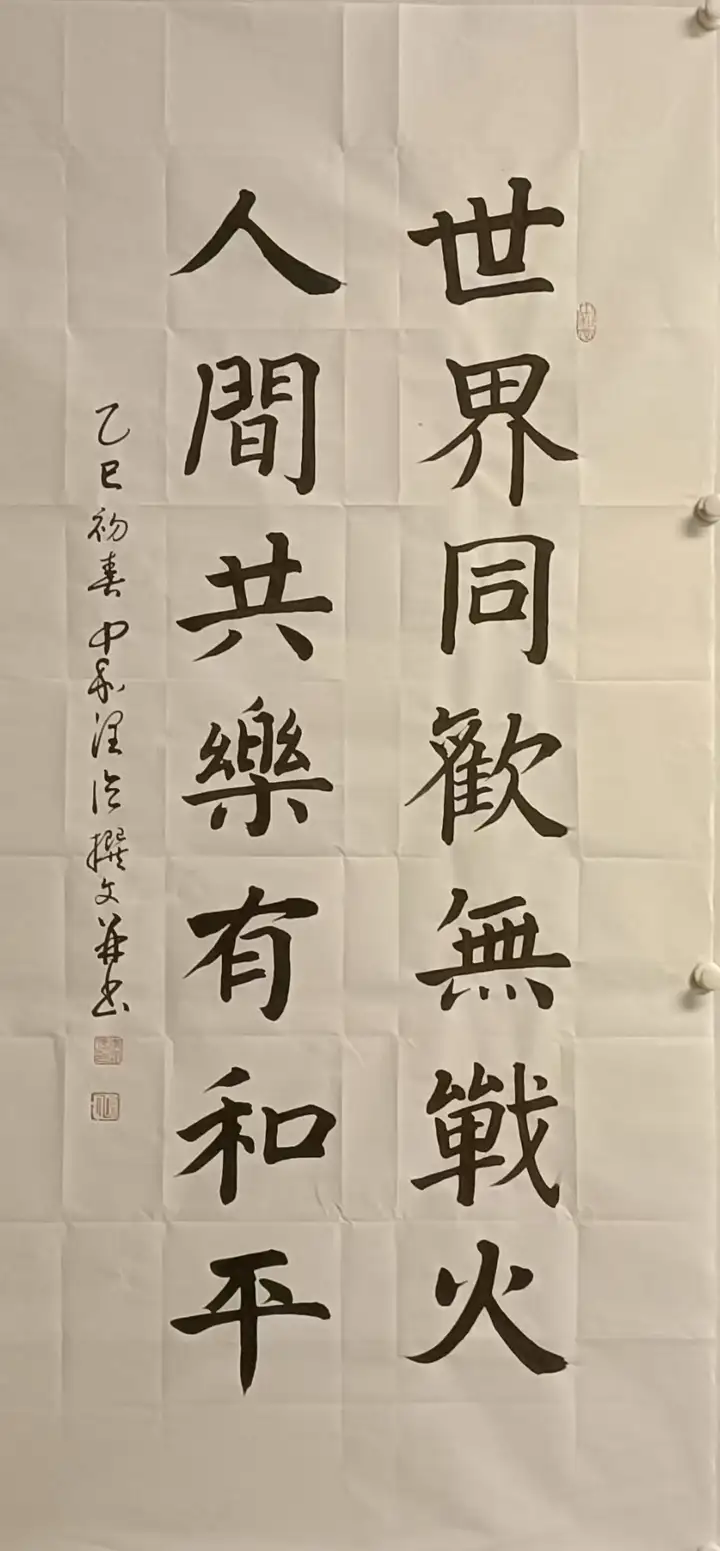 世界同歡無戰火
人間共樂有和平
乙巳初春中和涇泛撰文并书